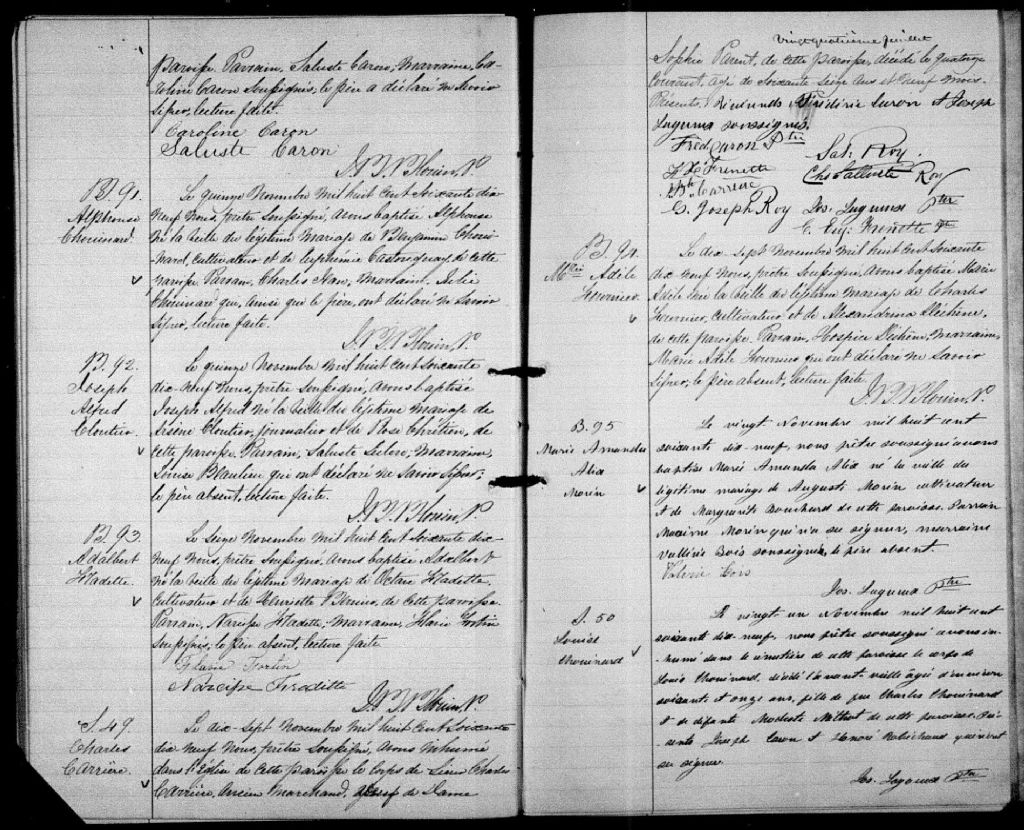 Paroisse. Parrain, Saluste Caron, Marraine, Ca-
roline Caron soussignés, le père a déclaré ne savoir
signer, lecture faite.
Caroline Caron
Saluste Caron
B. 91.
Alphonse
Chouinard.
Le quinze Novembre mil huit cent soixante dix
neuf nous, prêtre soussigné, avons baptisé Alphonse
né la veille du légitime mariage de Benjamin Choui-
nard, cultivateur et de Euphémie Castonguay de cette
paroisse Parrain, Charles Marraine, Julie
Chouinard qui, ainsi que le père, ont déclaré ne savoir
signer, lecture faite.
B. 92.
Joseph
Alfred
Cloutier.
Le quinze Novembre mil huit cent soixante
dix-neuf nous, prêtre soussigné, avons baptisé
Joseph Alfred né la veille du légitime mariage de
Arsène Cloutier, journalier et de Rose Chrétien, de
cette paroisse. Parrain, Saluste Leclerc, Marraine,
Louise Beaulieu qui ont déclaré ne savoir signer;
le père absent, lecture faite.
B. 93.
Adalbert
Le seize Novembre mil huit cent soixante dix-
neuf nous, prêtre soussigné, avons baptisé Adalbert
né la veille du légitime mariage de Octave
cultivateur et de Henriette de cette paroisse.
Parrain, Narcisse Marraine, Fortin
soussignés, le père absent, lecture faite
Fortin
Narcisse
S. 49
Charles
Carrière.
Le dix-sept Novembre mil huit cent soixante
dix neuf nous, prêtre soussigné, avons inhumé
dans l'Eglise de cette paroisse le corps de Sieur Charles
Carrière, ancien marchand, de Dame
vingt quatrième juillet
Sophie Parent, de cette paroisse, décédé le quatorze
courant, agé de soixante seize ans et neuf mois.
Présents, Révérends Frédéric Caron et Joseph
Lagueux soussignés.
Fred Caron Ptre
Frenette
Sal: Roy.
Carrière
Chs Salluste Roy
C. Joseph Roy
Jos. Lagueux Ptre
C. Eug: Frenette Ptre
B. 94.
Marie Adèle
Fournier.
Le dix-sept Novembre mil huit cent soixante
dix neuf nous, prêtre soussigné, avons baptisé Marie
Adèle née la veille du légitime mariage de Charles
Fournier, cultivateur et de Alexandrine Dechêne,
de cette paroisse. Parrain, Hospice Dechêne, Marraine,
Marie Adèle Fournier qui ont déclaré ne savoir
signer, le père absent, lecture faite.
B. 95
Marie Amanda
Alix
Morin
Le vingt Novembre mil huit cent
soixante dix-neuf, nous prêtre soussigné avons
baptisé Marie Amanda Alix né la veille du
légitime mariage de Auguste Morin cultivateur
et de Marguerite Bouchard de cette paroisse. Parrain
Maxime Morin qui n'a su signer, marraine
Vallérie Bois soussignée, le père absent.
Valérie Bois
Jos. Lagueux Ptre
S. 50
Louise
Chouinard
Le vingt un Novembre mil huit cent
soixante dix-neuf, nous prêtre soussigné avons in-
humé dans le cimetière de cette paroisse le corps de
Louise Chouinard, décédé l'avant veille âgée d'environ
soixante et onze ans, fille de feu Charles Chouinard
et de défunte Modeste Méthot de cette paroisse. Pré-
sents Joseph Caron et Honoré Robichaud qui n'ont
su signer.
Jos. Lagueux Ptre